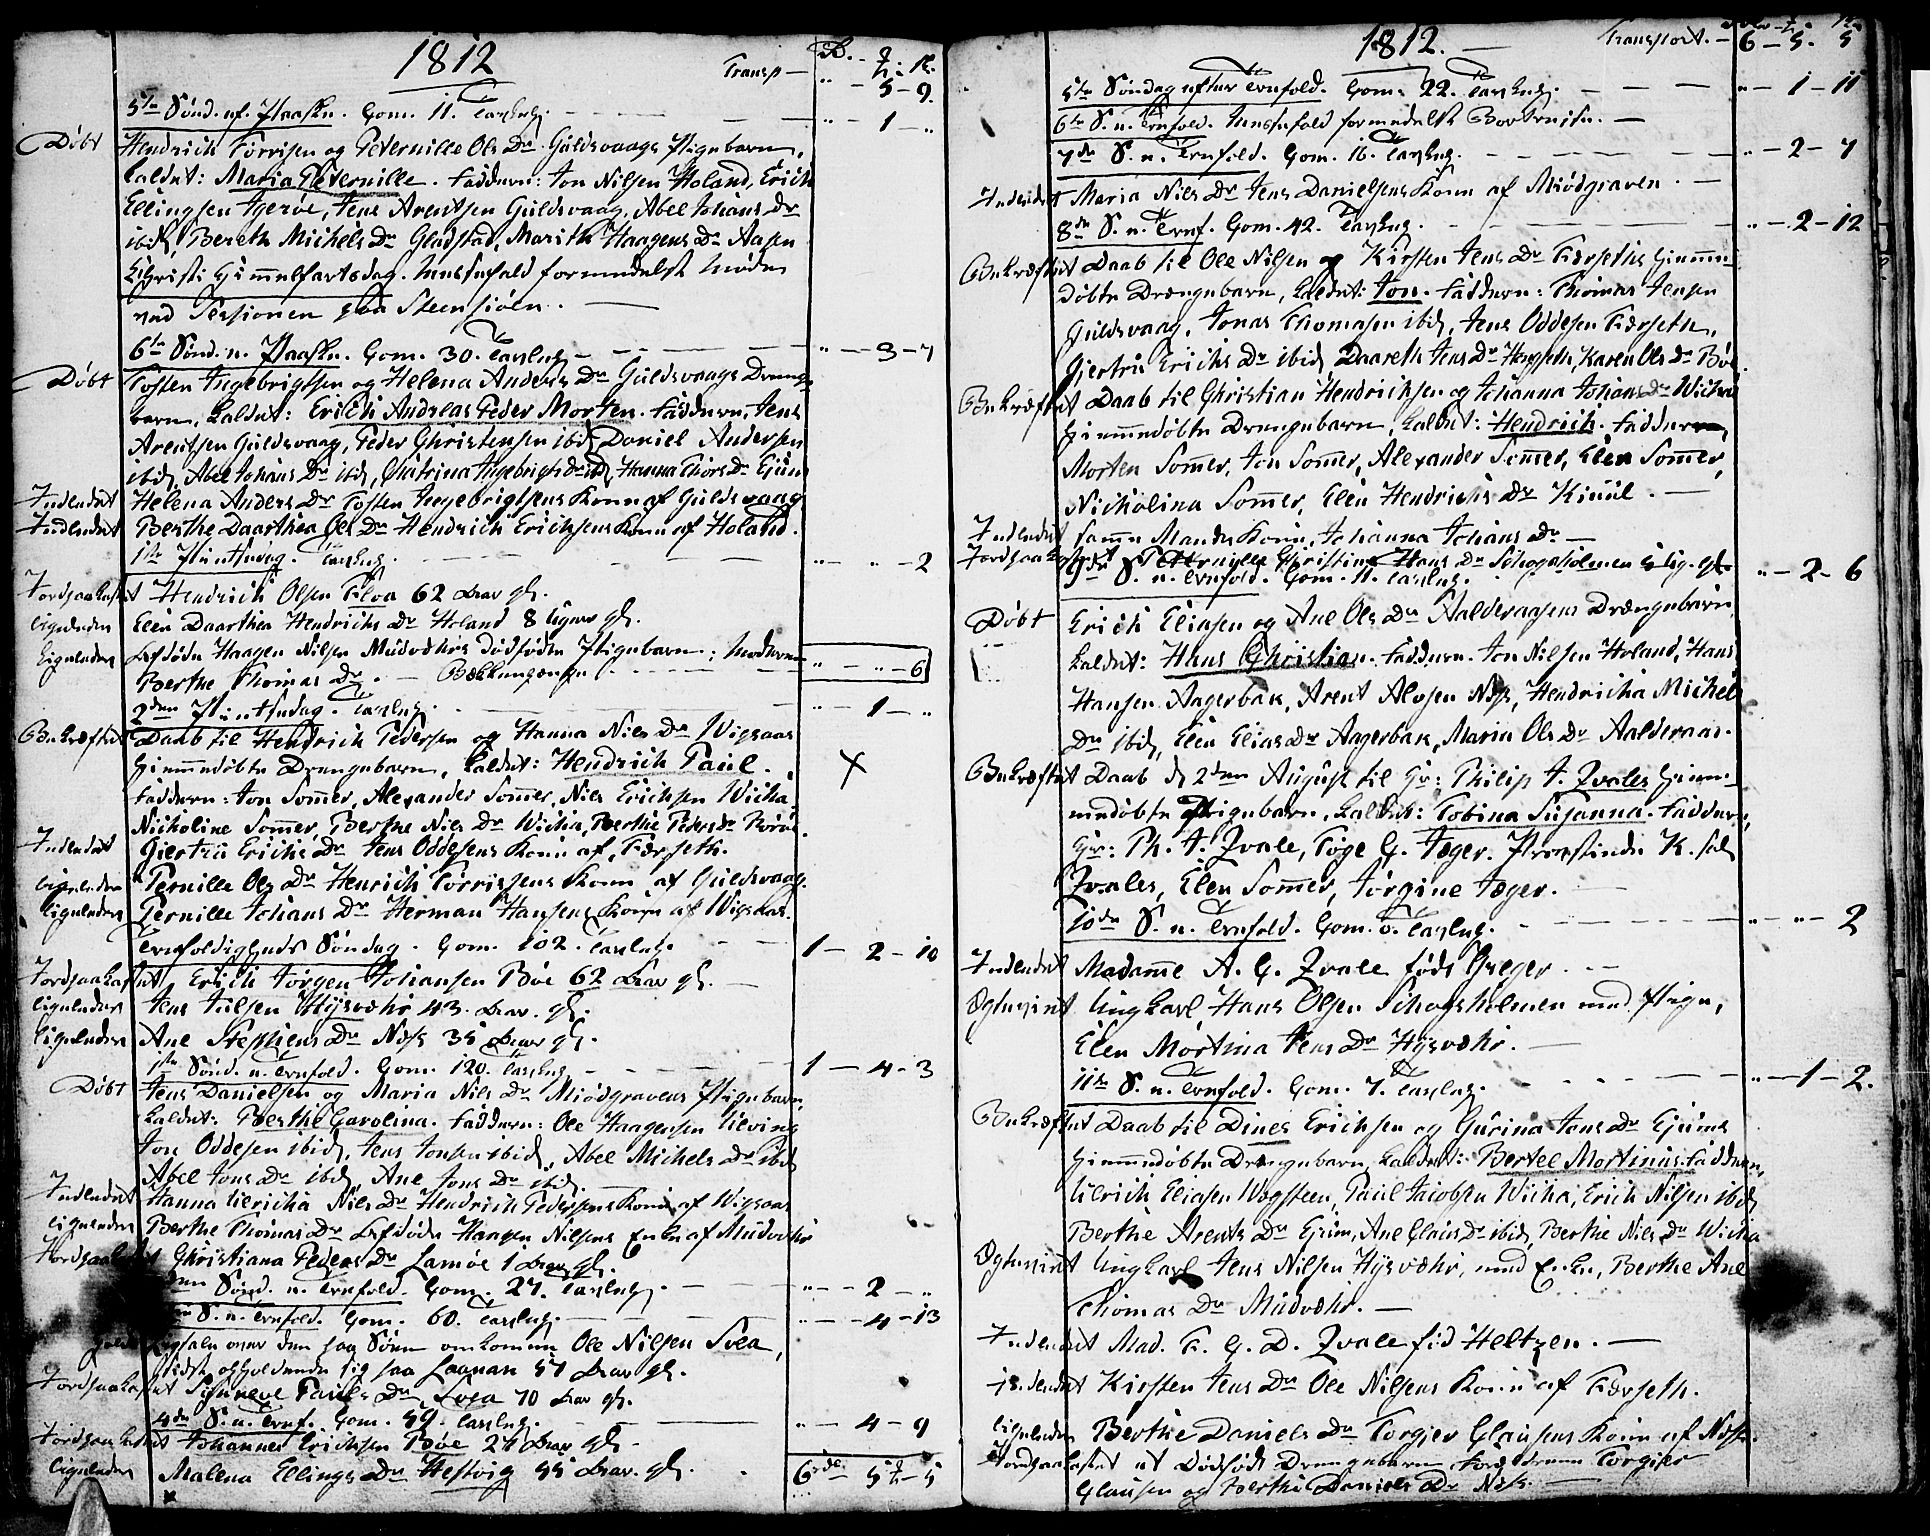 1812
Transp — Rd. — # — s.
" — 5 — 9.
5te Sönd. ef. Paaske. Com. 11. Tavlep. — " — 1 — "
Döbt Hendrich Torrisen og Peternille Ols Dr. Guldsvaags Pigebarn,
kaldet: Maria Peternille. Faddere: Jon Nilsen Holand, Erich
Ellingsen Tjeröe, Jens Arentsen Guldsvaag, Abel Johans Dr
ibid, Bereth Michels Dr Gladstad, Marith Haagens Dr Aasen
Christi Himmelfartsdag. Messefald formedelst Möde
ved Sessionen paa Steensiöen. —
6te Sönd. n. Paaske. Com. 30. Tavlep — " — 3 — 7
Döbt Tosten Ingebrigtsen og Helena Anders Dr Guldsvaags Drenge-
barn, kaldet: Erich Andreas Peder Morten. Faddere, Jens
Arentsen Guldsvaag, Peder Christensen ibid, Daniel Andersen
ibid, Abel Johans Dr ibid, Chatrina Ingebrigts Dr ibid, Hanna Thors Dr Ejum
Indledet Helena Anders Dr Tosten Ingebrigtsens Kone af Guldsvaag
Indledet Berthe Daarthea Ols Dr Hendrich Erichsens Kone af Holand.
1ste Pintsedag. Tavlep. — " — " — 2
Jordpaakastet Hendrich Olsen Floa 62 Aar gl.
ligeledes Elen Daarthea Hendrichs Dr Holand 8 Uger gl.
ligeledes Afdöde Haagen Nilsen Mudvæhrs dödfödte Pigebarn; Moderen
Berthe Thomas Dr. — Bækkenpenge — " — " — 6
2den Pintsedag. Tavlep. — " — 1 — "
Bekræftet Daab til Hendrich Pedersen og Hanna Nils Dr Vigsaas
hiemmedöbte Drengebarn, kaldet: Hendrich Paul. X
Faddere: Jon Sommer, Alexander Sommer, Nils Erichsen Wicha
Nicholine Sommer, Berthe Nils Dr Wicha, Berthe Peders Dr
Indledet Giertru Erichs Dr Jens Oddesens Kone af Færseth.
ligeledes Pernille Ols Dr Henrich Torrissens Kone af Guldsvaag.
ligeledes Pernille Johans Dr Herman Hansens Kone af Vigsaas.
Trefoldigheds Söndag. Com. 102. Tavlep. — 1 — 2 — 10
Jordpaakastet Erich Jörgen Johansen Böe 62 Aar gl. —
ligeledes Jens Julsen Hysvæhr 43. Aar. gl.
ligeledes Ane Stephens Dr Næs 35 Aar gl.
1ste Sönd. n. Trefold. Com. 120. Tavlep — 1 — 4 — 3
Döbt Jens Danielsen og Maria Nils Dr Miödgravens Pigebarn
kaldet: Berthe Carolina. Faddere: Ole Haagensen Ulving
Jon Oddesen ibid, Jens Jonsen ibid, Abel Michels Dr ibid
Abel Jons Dr ibid, Ane Jons Dr ibid.
Indledet Hanna Ulricha Nils Dr Hendrich Pedersens Kone af Vigsaas
ligeledes Berthe Thomas Dr Afdöde Haagen Nilsens Enke af Mudvæhr
Jordpaakastet Christiana Peders Dr Lamöe 1 Aar gl.
Sönd. n. Trefold. Com. 27. Tavlep. — " — 2 — "
S. n. Trefold. Com. 60. Tavlep. — " — 4 — 13
over den paa Söen omkomne Ole Nilsen Svea,
sidst opholdende sig paa 57 Aar gl.
Jordpaakastet Synneve Pauls Dr Svea 70 Aar gl.
4de S. n. Tref. Com. 59. Tavlep. — " — 4 — 9
Jordpaakastet Johannes Erichsen Böe 27 Aar gl.
ligeledes Malena Ellings Dr Hestvig 55 Aar. gl. 6 rd. 5 # — 5

1812. — Transport. — 6 — 5. 5
5te Söndag efter Trefold. Com. 22. Tavlep. — " — 1 — 11
6te S. n. Trefold. Messefald formedelst Bortreise. —
7de S. n. Trefold. Com. 16. Tavlep. — " — 2 — 7
Indledet Maria Nils Dr Jens Danielsens Kone af Miödgraven. —
8de S. n. Tref. Com. 42. Tavlep. — " — 2 — 12
Bekræftet Daab til Ole Nilsen og Kirsten Jens Dr Færseths hiemme-
döbte Drængebarn, kaldet: Jon. Faddere: Thomas Jensen
Guldsvaag, Jonas Thomasen ibid, Jens Oddesen Færseth,
Giertru Erichs Dr ibid, Daareth Jens Dr, Karen Ols Dr Böe.
Bekræftet Daab til Christian Hendrichsen og Johanna Johans Dr Wicha
hiemmedöbte Drengebarn, kaldet: Hendrich. Faddere
Morten Sommer, Jon Sommer, Alexander Sommer, Elen Sommer,
Nicholina Sommer, Elen Hendrichs Dr Kiuul. —
Indledet samme Mandes Kone, Johanna Johans Dr —
Jordpaakastet Peternille Christine Hans Dr Schogsholmen 5 Ug. gl.
9de S. n. Trefold. Com. 11. Tavlep. — " — 2 — 6
Döbt Erich Eliasen og Ane Ols Dr Aalderaasens Drængebarn
kaldet: Hans Christian. Faddere. Jon Nilsen Holand, Hans
Hansen Aagerbak, Arent Alvsen Næs, Hendricha Michels
Dr ibid, Elen Elias Dr Aagerbak, Maria Ols Dr Aalderaas.
Bekræftet Daab d. 2den August til Hr: Philip A. Qvales hiem-
medöbte Pigebarn, kaldet: Tobina Susanna. Faddere,
Hr: Ph. A. Qvale, Töge G. Jæger. Provstinde K. sal.
Qvales, Elen Sommer, Jörgine Jæger. —
10de S. n. Trefold. Com. 0. Tavlep. — " — " — 2
Indledet Madamme A. G. Qvale födt Greger. —
Ægteviet Ungkarl Hans Olsen Schogsholmen med Pige,
Elen Mortina Jens Dr Hysvæhr. —
11te S. n. Trefold. Com. 7. Tavlep. — " — 1 — 2.
Bekræftet Daab til Dines Erichsen og Gurina Jons Dr Ejums
hiemmedöbte Drengebarn, kaldet: Bertel Mortinus. Faddere,
Ulrich Eliasen Wegsteen, Paul Jacobsen Wicha, Erich Nilsen ibid
Berthe Arents Dr Ejum, Ane Claus Dr ibid, Berthe Nils Dr Wicha
Ægteviet Ungkarl Jens Nilsen Hysvæhr, med Enke, Berthe Ane
Thomas Dr Mudvæhr. —
Indledet Mad. F. G. D. Qvale föd Heltzen. —
Indledet Kirsten Jens Dr Ole Nilsens Kone af Færseth.
ligeledes Berthe Daniels Dr Torgier Clausens Kone af Næs.
Jordpaakastet et Dödfödt Drengebarn, Forældrene Torgier
Clausen og Berthe Daniels Dr Næs. —